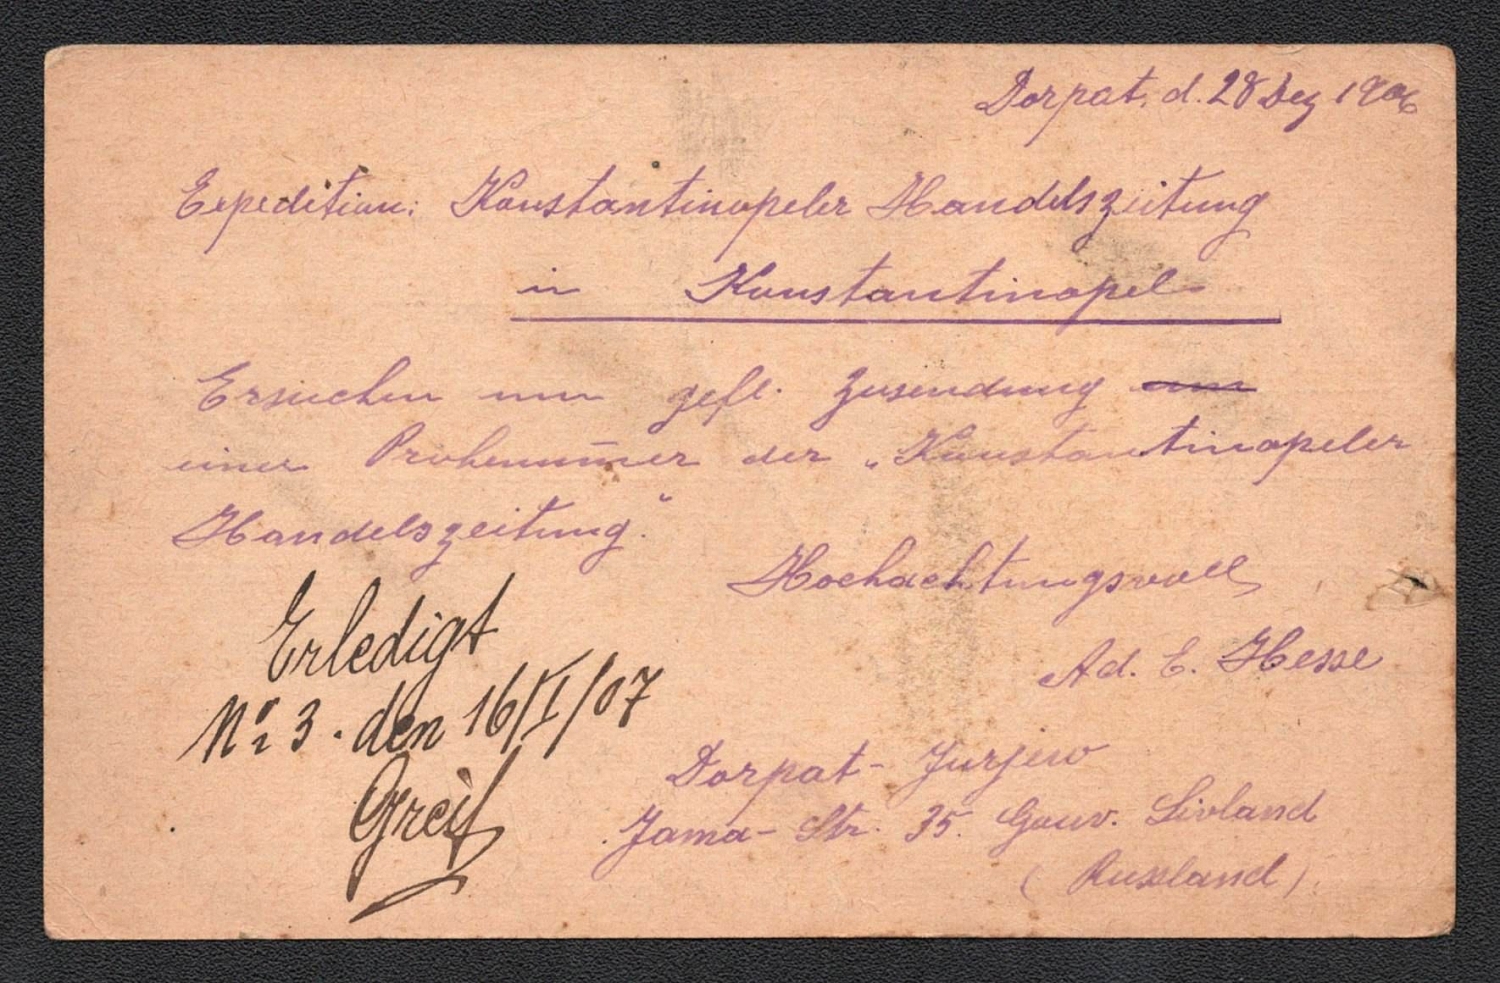 Dorpat, d. 28 Dez 1906
Expedition: Konstantinopeler Handelszeitung
in Konstantinopel
Ersuchen um gefl. Zusendung um
einer Probenum̅er der „Konstantinopeler
Handelszeitung."
Hochachtungsvoll
Ad. E. Hesse
Dorpat- Jurjew
Jama- Str. 35. Gouv. Livland
(Russland)
Erledigt
No 3. den 16/I/07
Greif